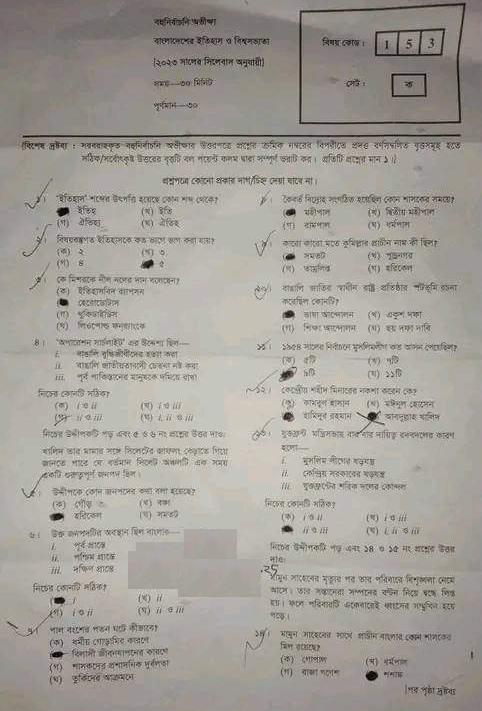 বহুনির্বাচনি অভীক্ষা
বাংলাদেশের ইতিহাস ও বিশ্বসভ্যতা
[২০২৩ সালের সিলেবাস অনুযায়ী]
বিষয় কোড : 1 5 3
সময়—৩০ মিনিট
সেট : ক
পূর্ণমান—৩০
[বিশেষ দ্রষ্টব্য : সরবরাহকৃত বহুনির্বাচনি অভীক্ষার উত্তরপত্রে প্রশ্নের ক্রমিক নম্বরের বিপরীতে প্রদত্ত বর্ণসম্বলিত বৃত্তসমূহ হতে
সঠিক/সর্বোৎকৃষ্ট উত্তরের বৃত্তটি বল পয়েন্ট কলম দ্বারা সম্পূর্ণ ভরাট কর। প্রতিটি প্রশ্নের মান ১।]
প্রশ্নপত্রে কোনো প্রকার দাগ/চিহ্ন দেয়া যাবে না।
১। 'ইতিহাস' শব্দের উৎপত্তি হয়েছে কোন শব্দ থেকে?
ইতিহ (খ) ইতি
(গ) ঐতিহ্য (ঘ) ঐতিহ
২। বিষয়বস্তুগত ইতিহাসকে কত ভাগে ভাগ করা যায়?
(ক) ২ (খ) ৩
(গ) ৪ ৫
৩। কে মিশরকে নীল নদের দান বলেছেন?
(ক) ইতিহাসবিদ র‍্যাপসন
হেরোডোটাস
(গ) থুকিডাইডিস
(ঘ) লিওপোল্ড ফনর‍্যাংকে
৪। 'অপারেশন সার্চলাইট' এর উদ্দেশ্য ছিল—
i. বাঙালি বুদ্ধিজীবীদের হত্যা করা
ii. বাঙালি জাতীয়তাবাদী চেতনা নষ্ট করা
iii. পূর্ব পাকিস্তানের মানুষকে দমিয়ে রাখা
নিচের কোনটি সঠিক?
(ক) i ও ii (খ) i ও iii
(গ) ii ও iii (ঘ) i, ii ও iii
নিচের উদ্দীপকটি পড় এবং ৫ ও ৬ নং প্রশ্নের উত্তর দাও:
খালিদ তার মামার সঙ্গে সিলেটের জাফলং বেড়াতে গিয়ে
জানতে পারে যে বর্তমান সিলেট অঞ্চলটি এক সময়
একটি গুরুত্বপূর্ণ জনপদ ছিল।
৫। উদ্দীপকে কোন জনপদের কথা বলা হয়েছে?
(ক) গৌড় (খ) বঙ্গ
হরিকেল (ঘ) সমতট
৬। উক্ত জনপদটির অবস্থান ছিল বাংলার—
i. পূর্ব প্রান্তে
ii. পশ্চিম প্রান্তে
iii. দক্ষিণ প্রান্তে
নিচের কোনটি সঠিক?
i (খ) ii
(গ) i ও ii (ঘ) ii ও iii
৭। পাল বংশের পতন ঘটে কীভাবে?
(ক) ধর্মীয় গোড়ামির কারণে
বিলাসী জীবনযাপনের কারণে
(গ) শাসকদের প্রশাসনিক দুর্বলতা
(ঘ) তুর্কিদের আক্রমনে
৮। কৈবর্ত বিদ্রোহ সংগঠিত হয়েছিল কোন শাসকের সময়ে?
মহীপাল (খ) দ্বিতীয় মহীপাল
(গ) রামপাল (ঘ) ধর্মপাল
৯। কারো কারো মতে কুমিল্লার প্রাচীন নাম কী ছিল?
সমতট (খ) পুন্ড্রনগর
(গ) তাম্রলিপ্ত (ঘ) হরিকেল
১০। বাঙালি জাতির স্বাধীন রাষ্ট্র প্রতিষ্ঠার পটভূমি রচনা
করেছিল কোনটি?
ভাষা আন্দোলন (খ) একুশ দফা
(গ) শিক্ষা আন্দোলন (ঘ) ছয় দফা দাবি
১১। 1৯৫৪ সালের নির্বাচনে মুসলিমলীগ কত আসন পেয়েছিল?
(ক) ৫টি (খ) ৭টি
৯টি (ঘ) ১১টি
১২। কেন্দ্রীয় শহীদ মিনারের নকশা করেন কে?
(ক) কামরুল হাসান (খ) মঈনুল হোসেন
হামিদুর রহমান আবদুল্লাহ খালিদ
১৩। যুক্তফ্রন্ট মন্ত্রিসভায় বার বার দায়িত্ব রদবদলের কারণ
হলো—
i. মুসলিম লীগের ষড়যন্ত্র
ii. কেন্দ্রিয় সরকারের ষড়যন্ত্র
iii. যুক্তফ্রন্টের শরিক দলের কোন্দল
নিচের কোনটি সঠিক?
(ক) i ও ii (খ) i ও iii
ii ও iii (ঘ) i, ii ও iii
নিচের উদ্দীপকটি পড় এবং ১৪ ও ১৫ নং প্রশ্নের উত্তর
দাও:
মামুন সাহেবের মৃত্যুর পর তার পরিবারে বিশৃঙ্খলা নেমে
আসে। তার সন্তানেরা সম্পদের বন্টন নিয়ে দ্বন্দ্বে লিপ্ত
হয়। ফলে পরিবারটি একেবারেই ধ্বংসের সম্মুখিন হয়ে
পড়ে।
১৪। মামুন সাহেবের সাথে প্রাচীন বাংলার কোন শাসকের
মিল রয়েছে?
(ক) গোপাল (খ) ধর্মপাল
(গ) রাজা গণেশ শশাঙ্ক
[পর পৃষ্ঠা দ্রষ্টব্য